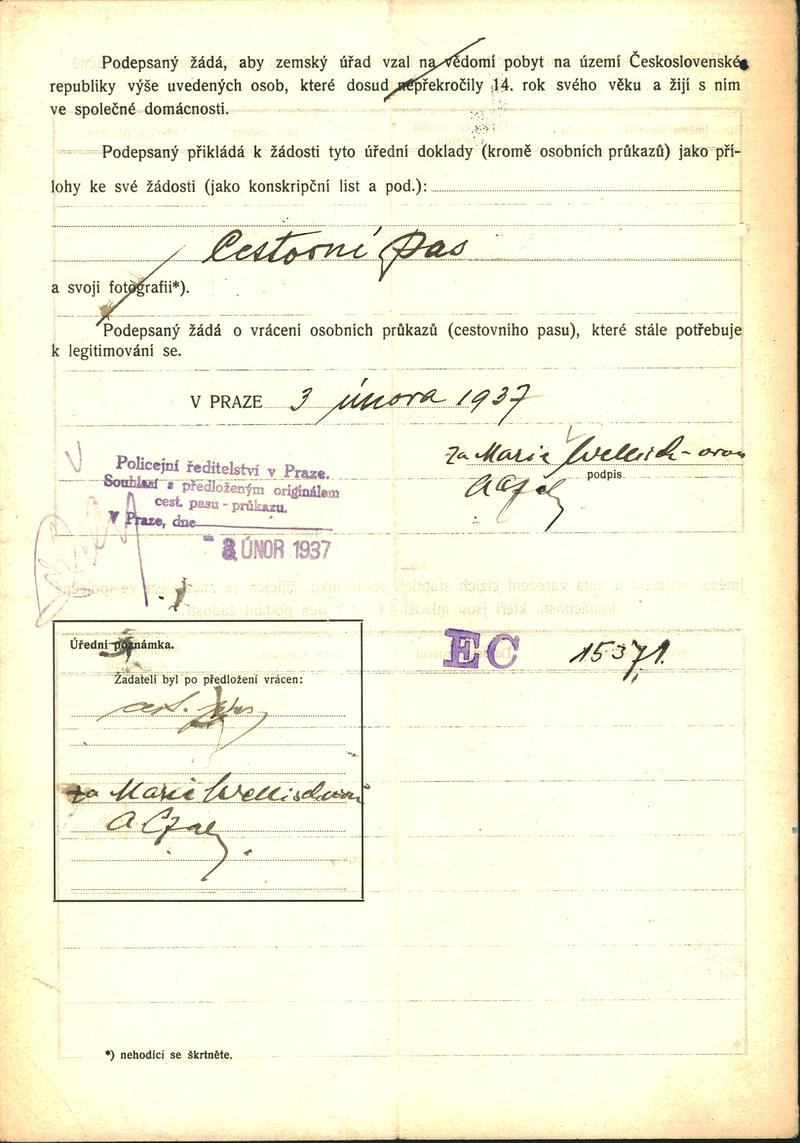 Podepsaný žádá, aby zemský úřad vzal na vědomí pobyt na území Československé
republiky výše uvedených osob, které dosud nepřekročily 14. rok svého věku a žijí s ním
ve společné domácnosti.
Podepsaný přikládá k žádosti tyto úřední doklady (kromě osobních průkazů) jako pří-
lohy ke své žádosti (jako konskripční list a pod.):
Cestovní pas
a svoji fotografii*).
Podepsaný žádá o vrácení osobních průkazů (cestovního pasu), které stále potřebuje
k legitimování se.
V PRAZE 3 února 1937
za Marie Wellisch-ovou
podpis
Policejní ředitelství v Praze.
Souhlasí s předloženým originálem
cest. pasu - průkazu.
V Praze, dne
- 3. ÚNOR 1937
EC 15371.
Úřední poznámka.
Žadateli byl po předložení vrácen:
cest. pas
za Marie Wellischovou
*) nehodící se škrtněte.